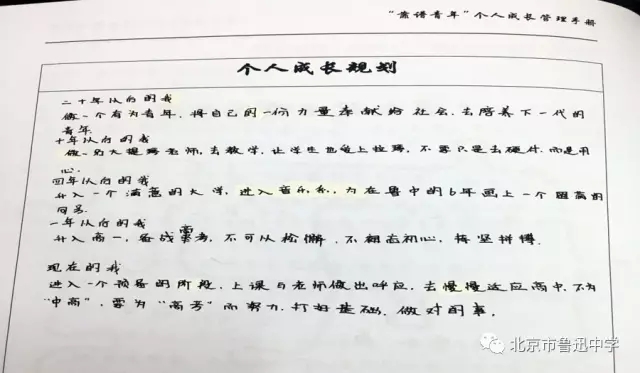 “靠谱青年”个人成长管理手册
个人成长规划
二十年以后的我
做一个有为青年，将自己的一份力量奉献给社会，去培养下一代的
青年
十年以后的我
做一名大提琴老师，去教学，让学生也爱上性，不要只是去硬件，而是用
心。
四年以后的我
升入一个满意的大学，进入音乐系，为在鲁中的6年画上一个圆满的
句号。
一年以后的我
升入高一，备战高考，不可以松懈，不能忘初心，持坚拼搏
现在的我
进入一个预备的阶段，上课与老师做出呼应，去慢慢适应高中，不为
“中高”，要为“高考”而努力，打好基础，做对的事。
北京市鲁迅中学